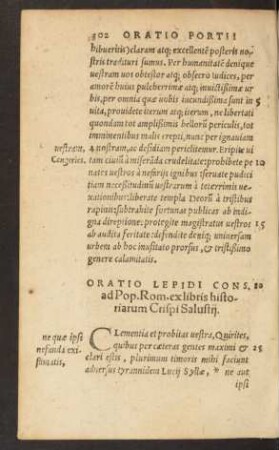 802 ORATIO PORTII
hibueritis) claram atq; excellentē posteris nostris tradituri sumus. Per humanitatē denique
uestram uos obtestor atq; obsecro iudices, per
amorē huius pulcherrimæ atq; inuictissimæ urbis, per omnia quæ uobis iucundissima sunt in 5
uita, prouidete iterum atq; iterum, ne libertati
quondam tot amplissimis bellorū periculis, tot
imminentibus malis erepti, nunc per ignauiam
uestram, & nostram, ac desidiam periclitemur. Eripite ui
Congeries. tam ciuiū à miserāda crudelitate: prohibete pe 10
nates uestros à nefarijs ignibus: seruate pudicitiam necessitudinū uestrarum à teterrimis uenationibus: liberate templa Deorū à tristibus
rapinis: subtrahite fortunas publicas ab indigna direptione: protegite magistratus uestros 15
ab audita feritate: defendite deniq; uniuersam
urbem ab hoc inusitato prorsus, & tristissimo
genere calamitatis.
ORATIO LEPIDI CONS. 20
ad Pop. Rom. ex libris historiarum Crispi Salustij.
ne quæ ipsi CLementia et probitas uestra, Quirites,
nefanda existimatis, quibus per cæteras gentes maximi & 25
clari estis, plurimum timoris mihi faciunt
aduersus tyrannidem Lucij Syllæ, * ne aut
ipsi